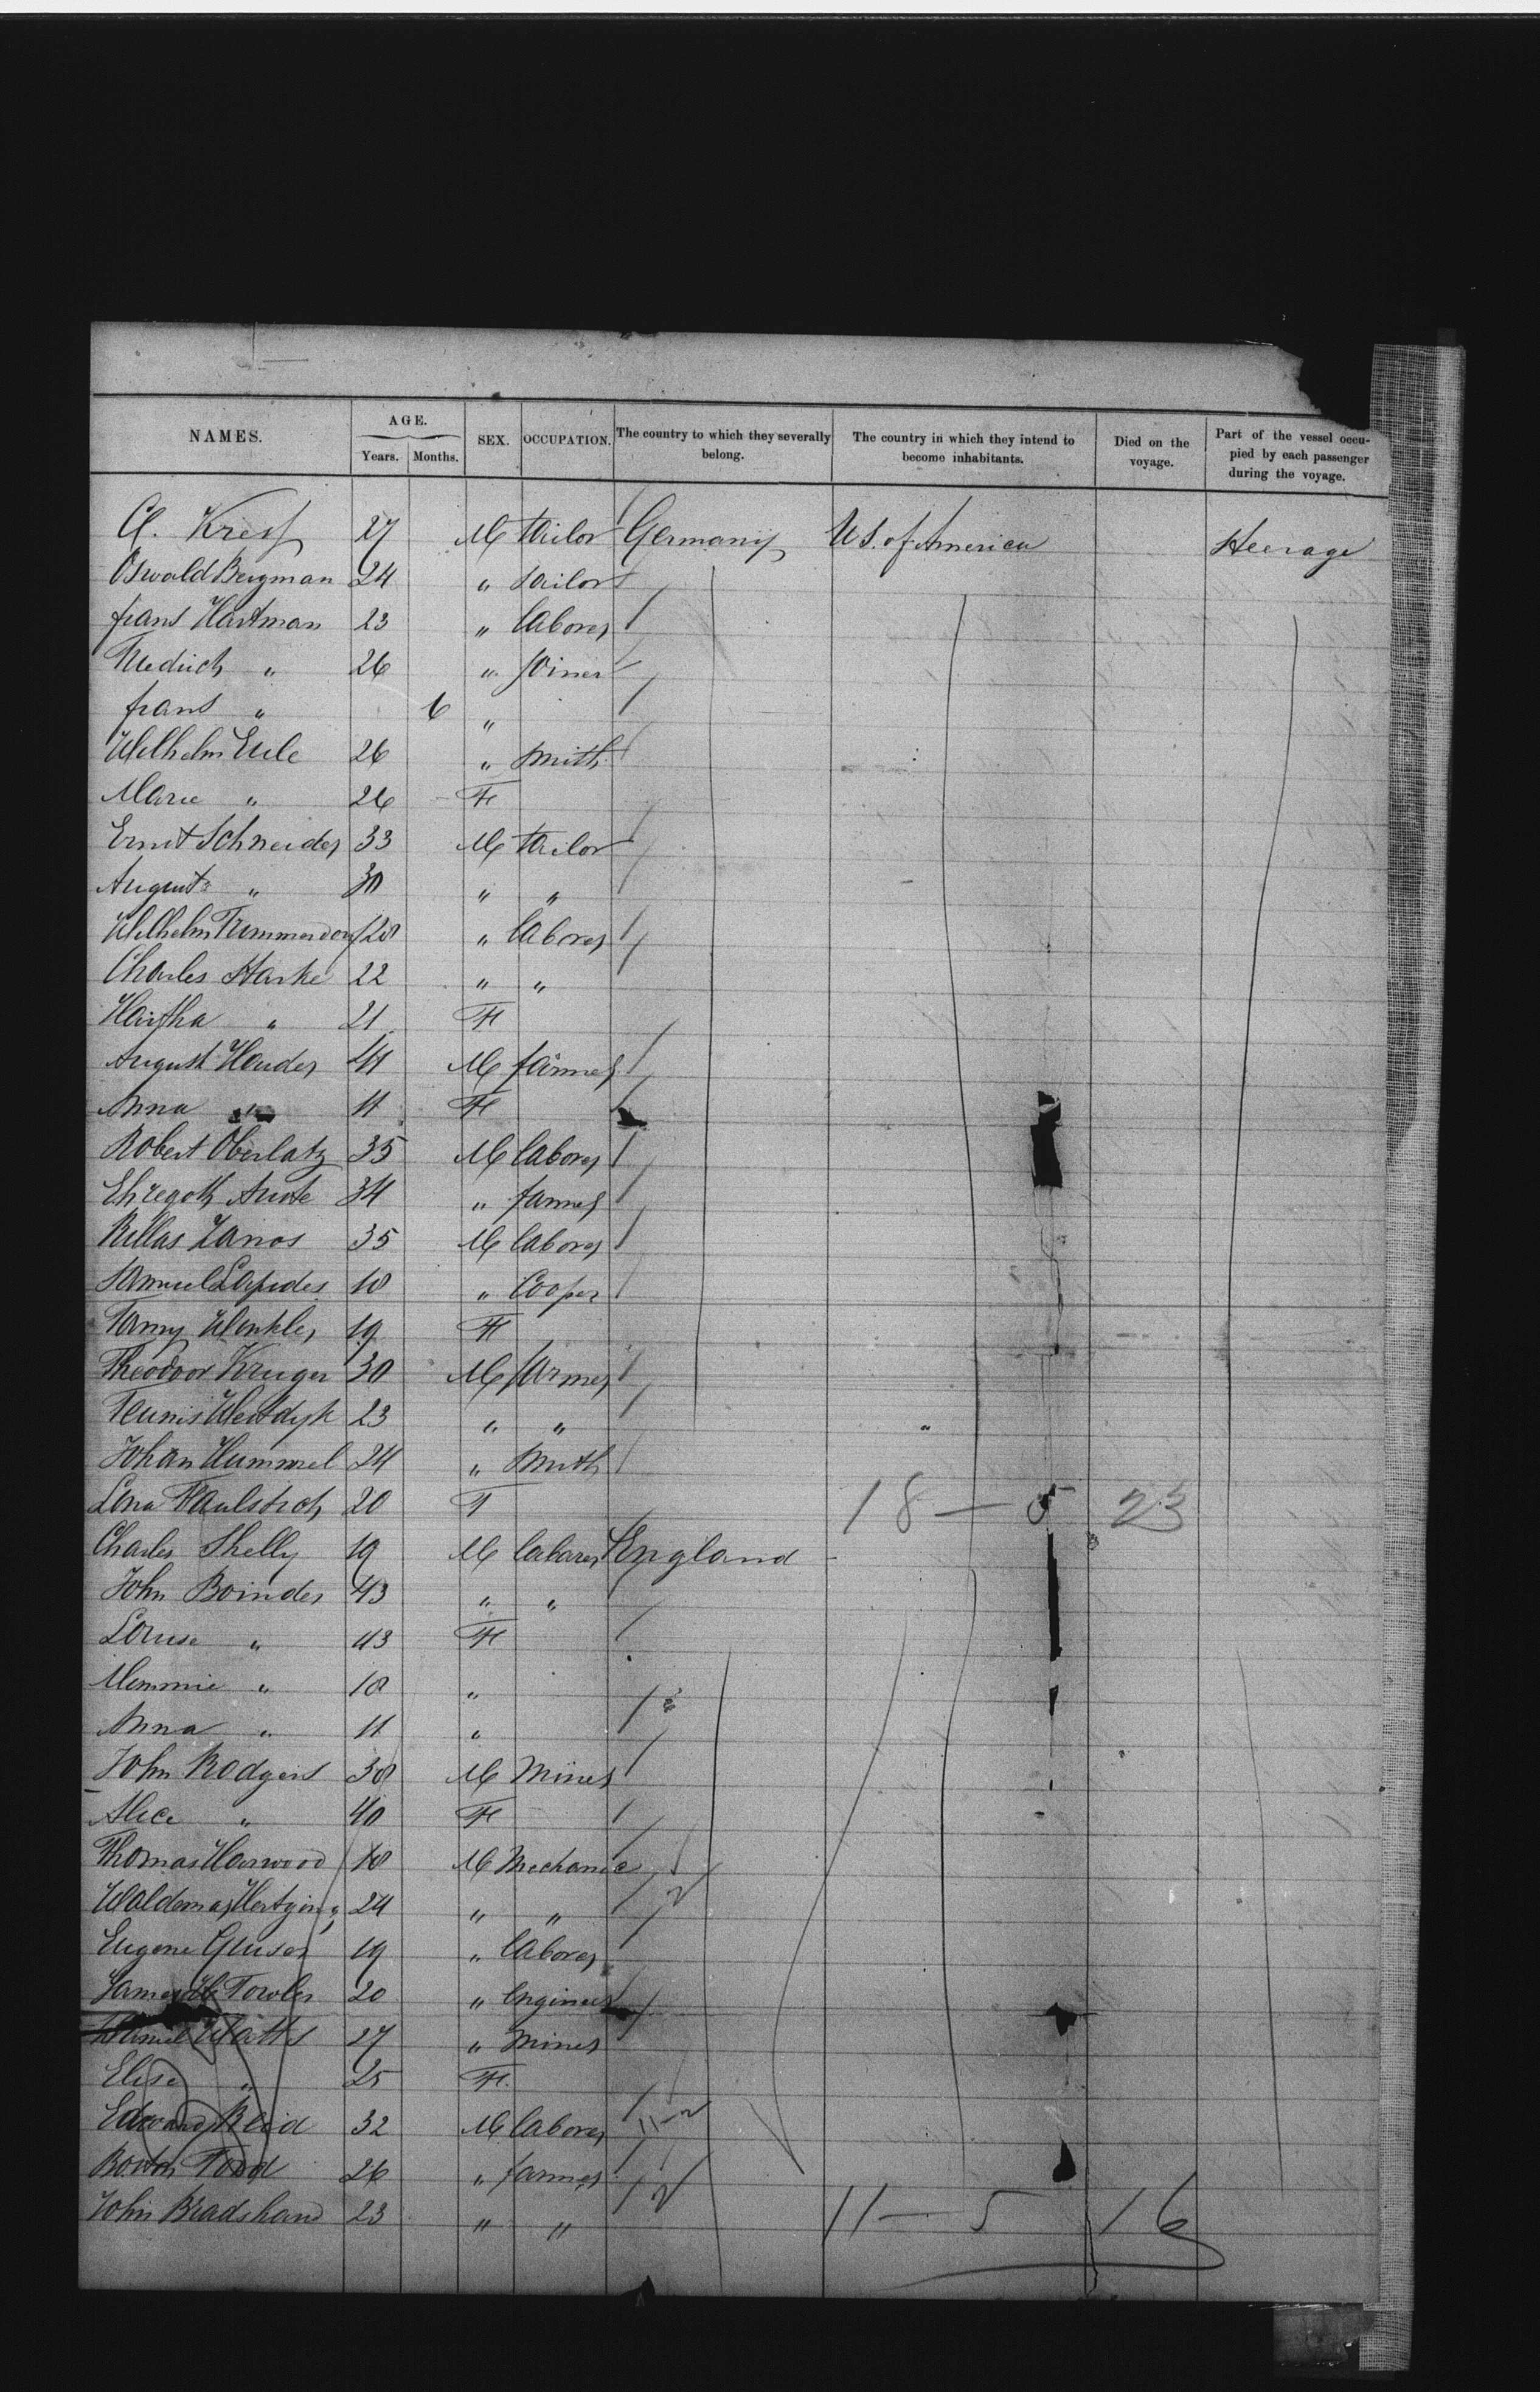 NAMES. AGE. Years. Months. SEX. OCCUPATION. The country to which they severally belong. The country in which they intend to become inhabitants. Died on the voyage. Part of the vessel occupied by each passenger during the voyage.
27 M tailor Germany U.S. of America Steerage
Oswald Bergman 24 " sailor
frans Hartman 23 " laborer
" 26 " joiner
frans " 6 "
Wilhelm Eule 26 " smith
Marie " 26 F
Ernst Schneider 33 M tailor
August " 30 " "
Wilhelm 28 " laborer
Charles Starke 22 " "
" 21 F
August 44 M farmer
Anna " 11 F
Robert Oberlatz 35 M laborer
34 " farmer
35 M laborer
Samuel Lapides 18 " Cooper
Fanny Winkler 19 F
Theodoor Kruger 30 M farmer
Teunis 23 " "
Johan Hummel 24 " smith
Lena 20 F 18 — 5 23
Charles Shelly 19 M laborer England
John Boinder 43 " "
Louise " 43 F
Memmie " 18 "
Anna " 11 "
John Rodgers 38 M Miner
Alice " 40 F
Thomas Harwood 18 M Mechanic
24 " "
Eugene 19 " laborer
James Towler 20 " Engineer
Daniel Watts 27 " miner
Elise " 25 F
Edward Reid 32 M laborer 11-2
Todd 26 " farmer
John Bradshand 23 " " 11 — 5 16